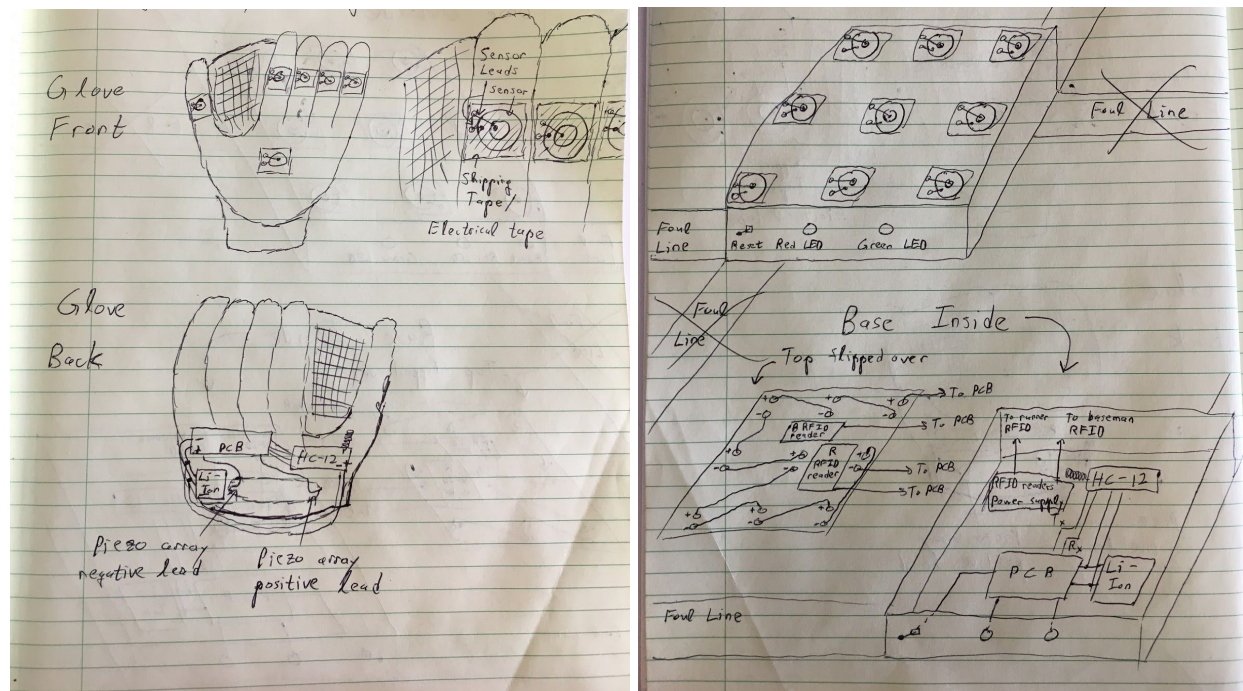 Glove
Front
Sensor
Leads
Sensor
Shipping
Tape/
Electrical tape
Glove
Back
PCB
HC-12
Li-
Ion
Piezo array
negative lead
Piezo array
positive lead
Foul Line
Foul
Line
Reset Red LED Green LED
Foul
Line
Base Inside
Top flipped over
+ + + To PCB
- - -
B RFID
reader
To PCB
+ + R +
RFID
reader
- - - To PCB
To PCB
+ + +
- - -
To runner
RFID
To baseman
RFID
RFID readers
Power supply
HC-12
Tx
Rx
PCB
Li-
Ion
Foul Line